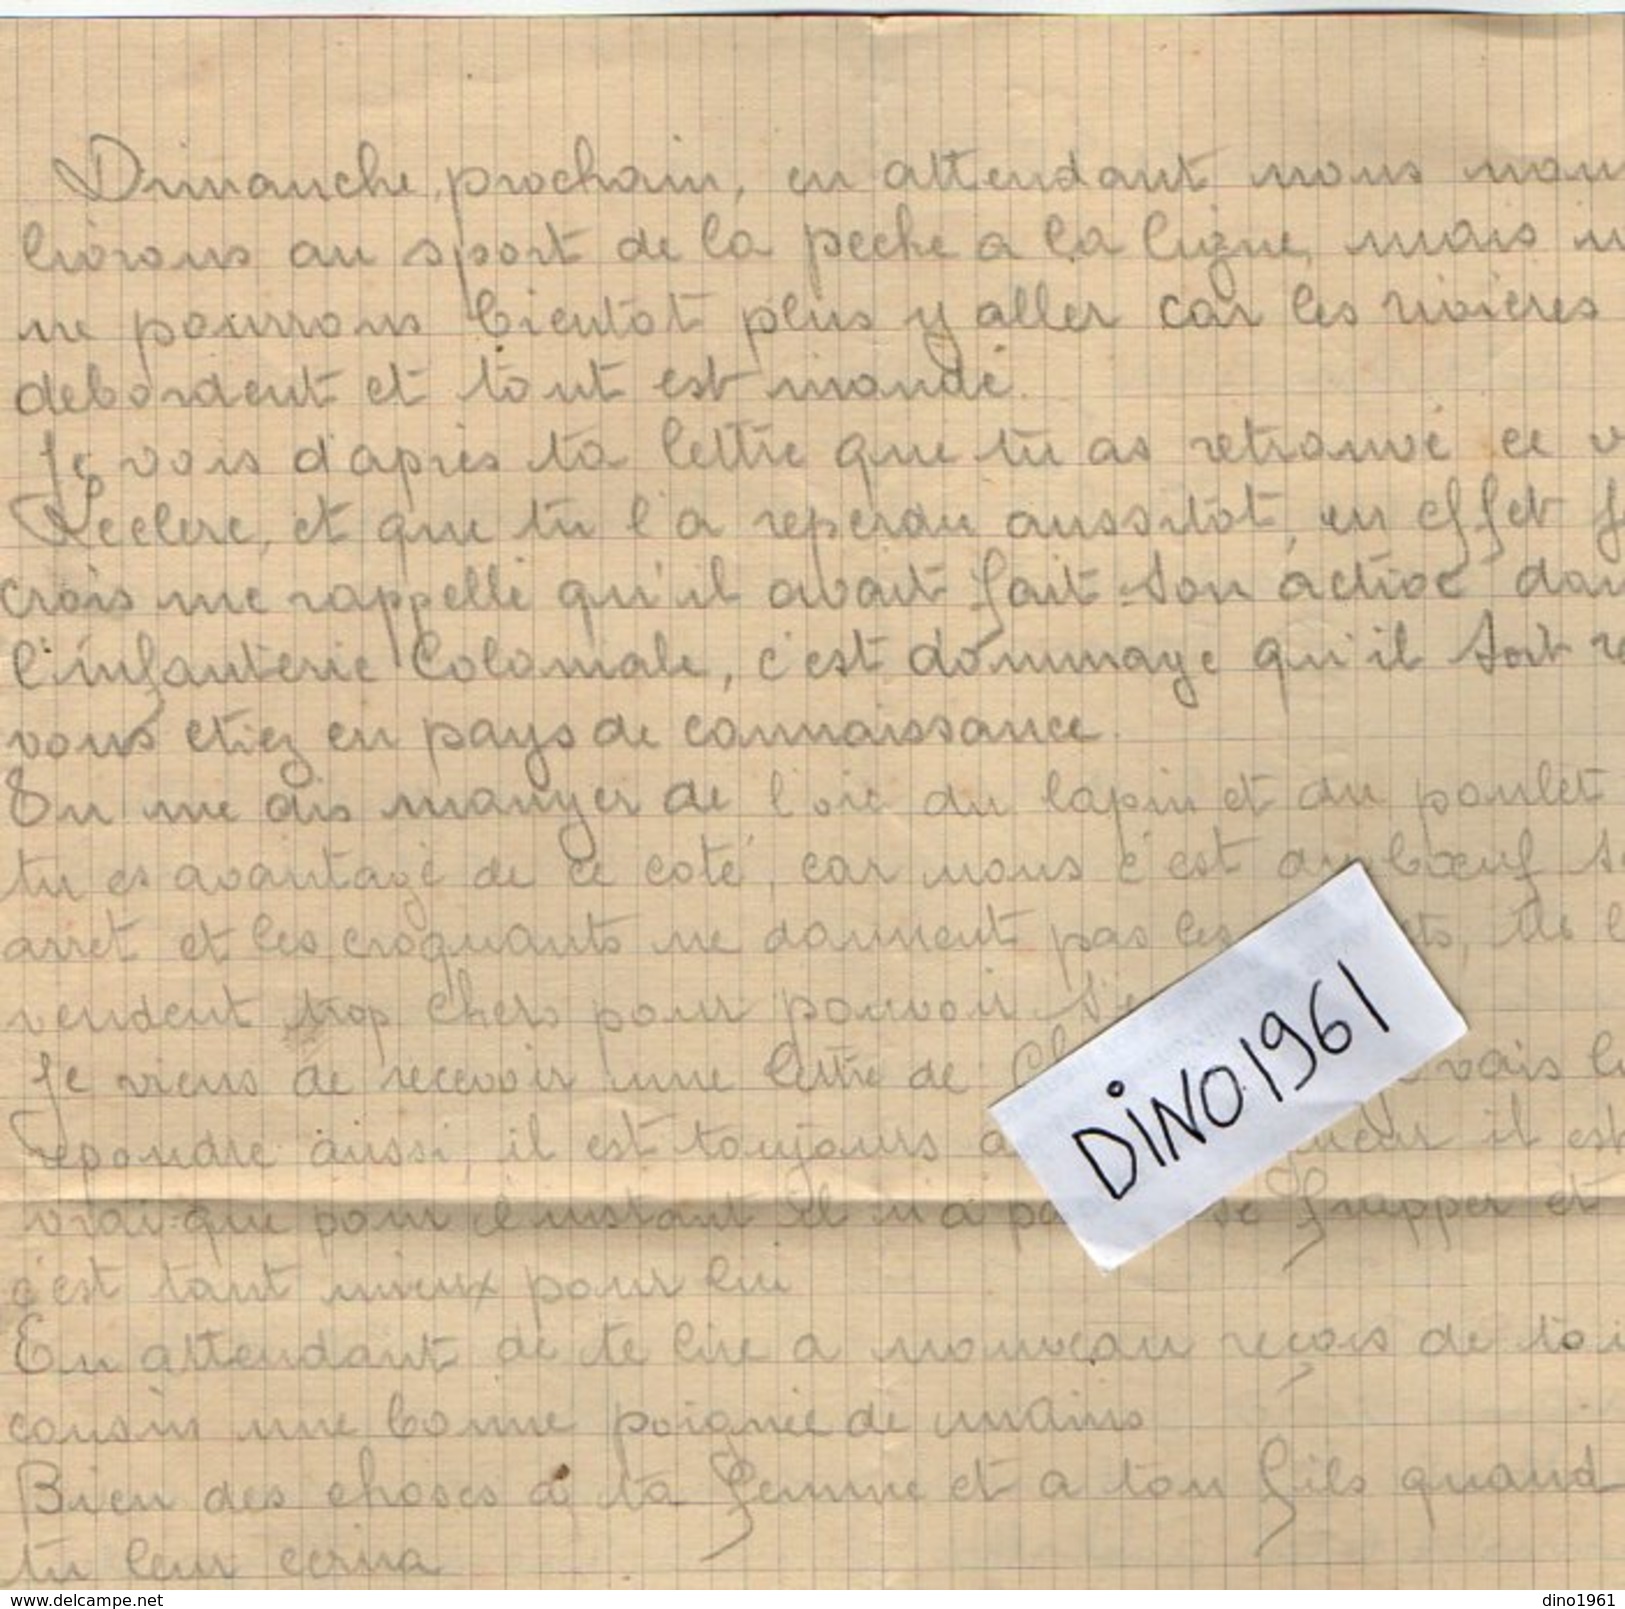 Dimanche prochain, en attendant nous nou
livrons au sport de la peche a la ligne, mais n
ne pourrons bientot plus y aller car les rivieres
debordent et tout est inondé.
Je vois d'apres ta lettre que tu as retrouvé ce v
Leclerc, et que tu l'a reperdu aussitot, en effet j
crois me rappelli qu'il avait fait son active dan
l'infanterie Coloniale, c'est dommage qu'il soit re
vous etiez en pays de connaissance.
Tu me dis manger de l'oie du lapin et du poulet
tu es avantagé de ce coté, car nous c'est du bœuf s
arret et les croquants ne donnent pas les ts, ils l
vendent trop chers pour pouvoir s'e
Je viens de recevoir une lettre de vais lu
repondre aussi, il est toujours a il est
vrai que pour l'instant il n'a pa se frapper et
c'est tant mieux pour lui
En attendant de te lire a nouveau reçois de ton
cousin une bonne poignée de mains
Bien des choses a ta femme et a ton fils quand
tu leur ecrira
DINO1961
www.delcampe.net
dino1961